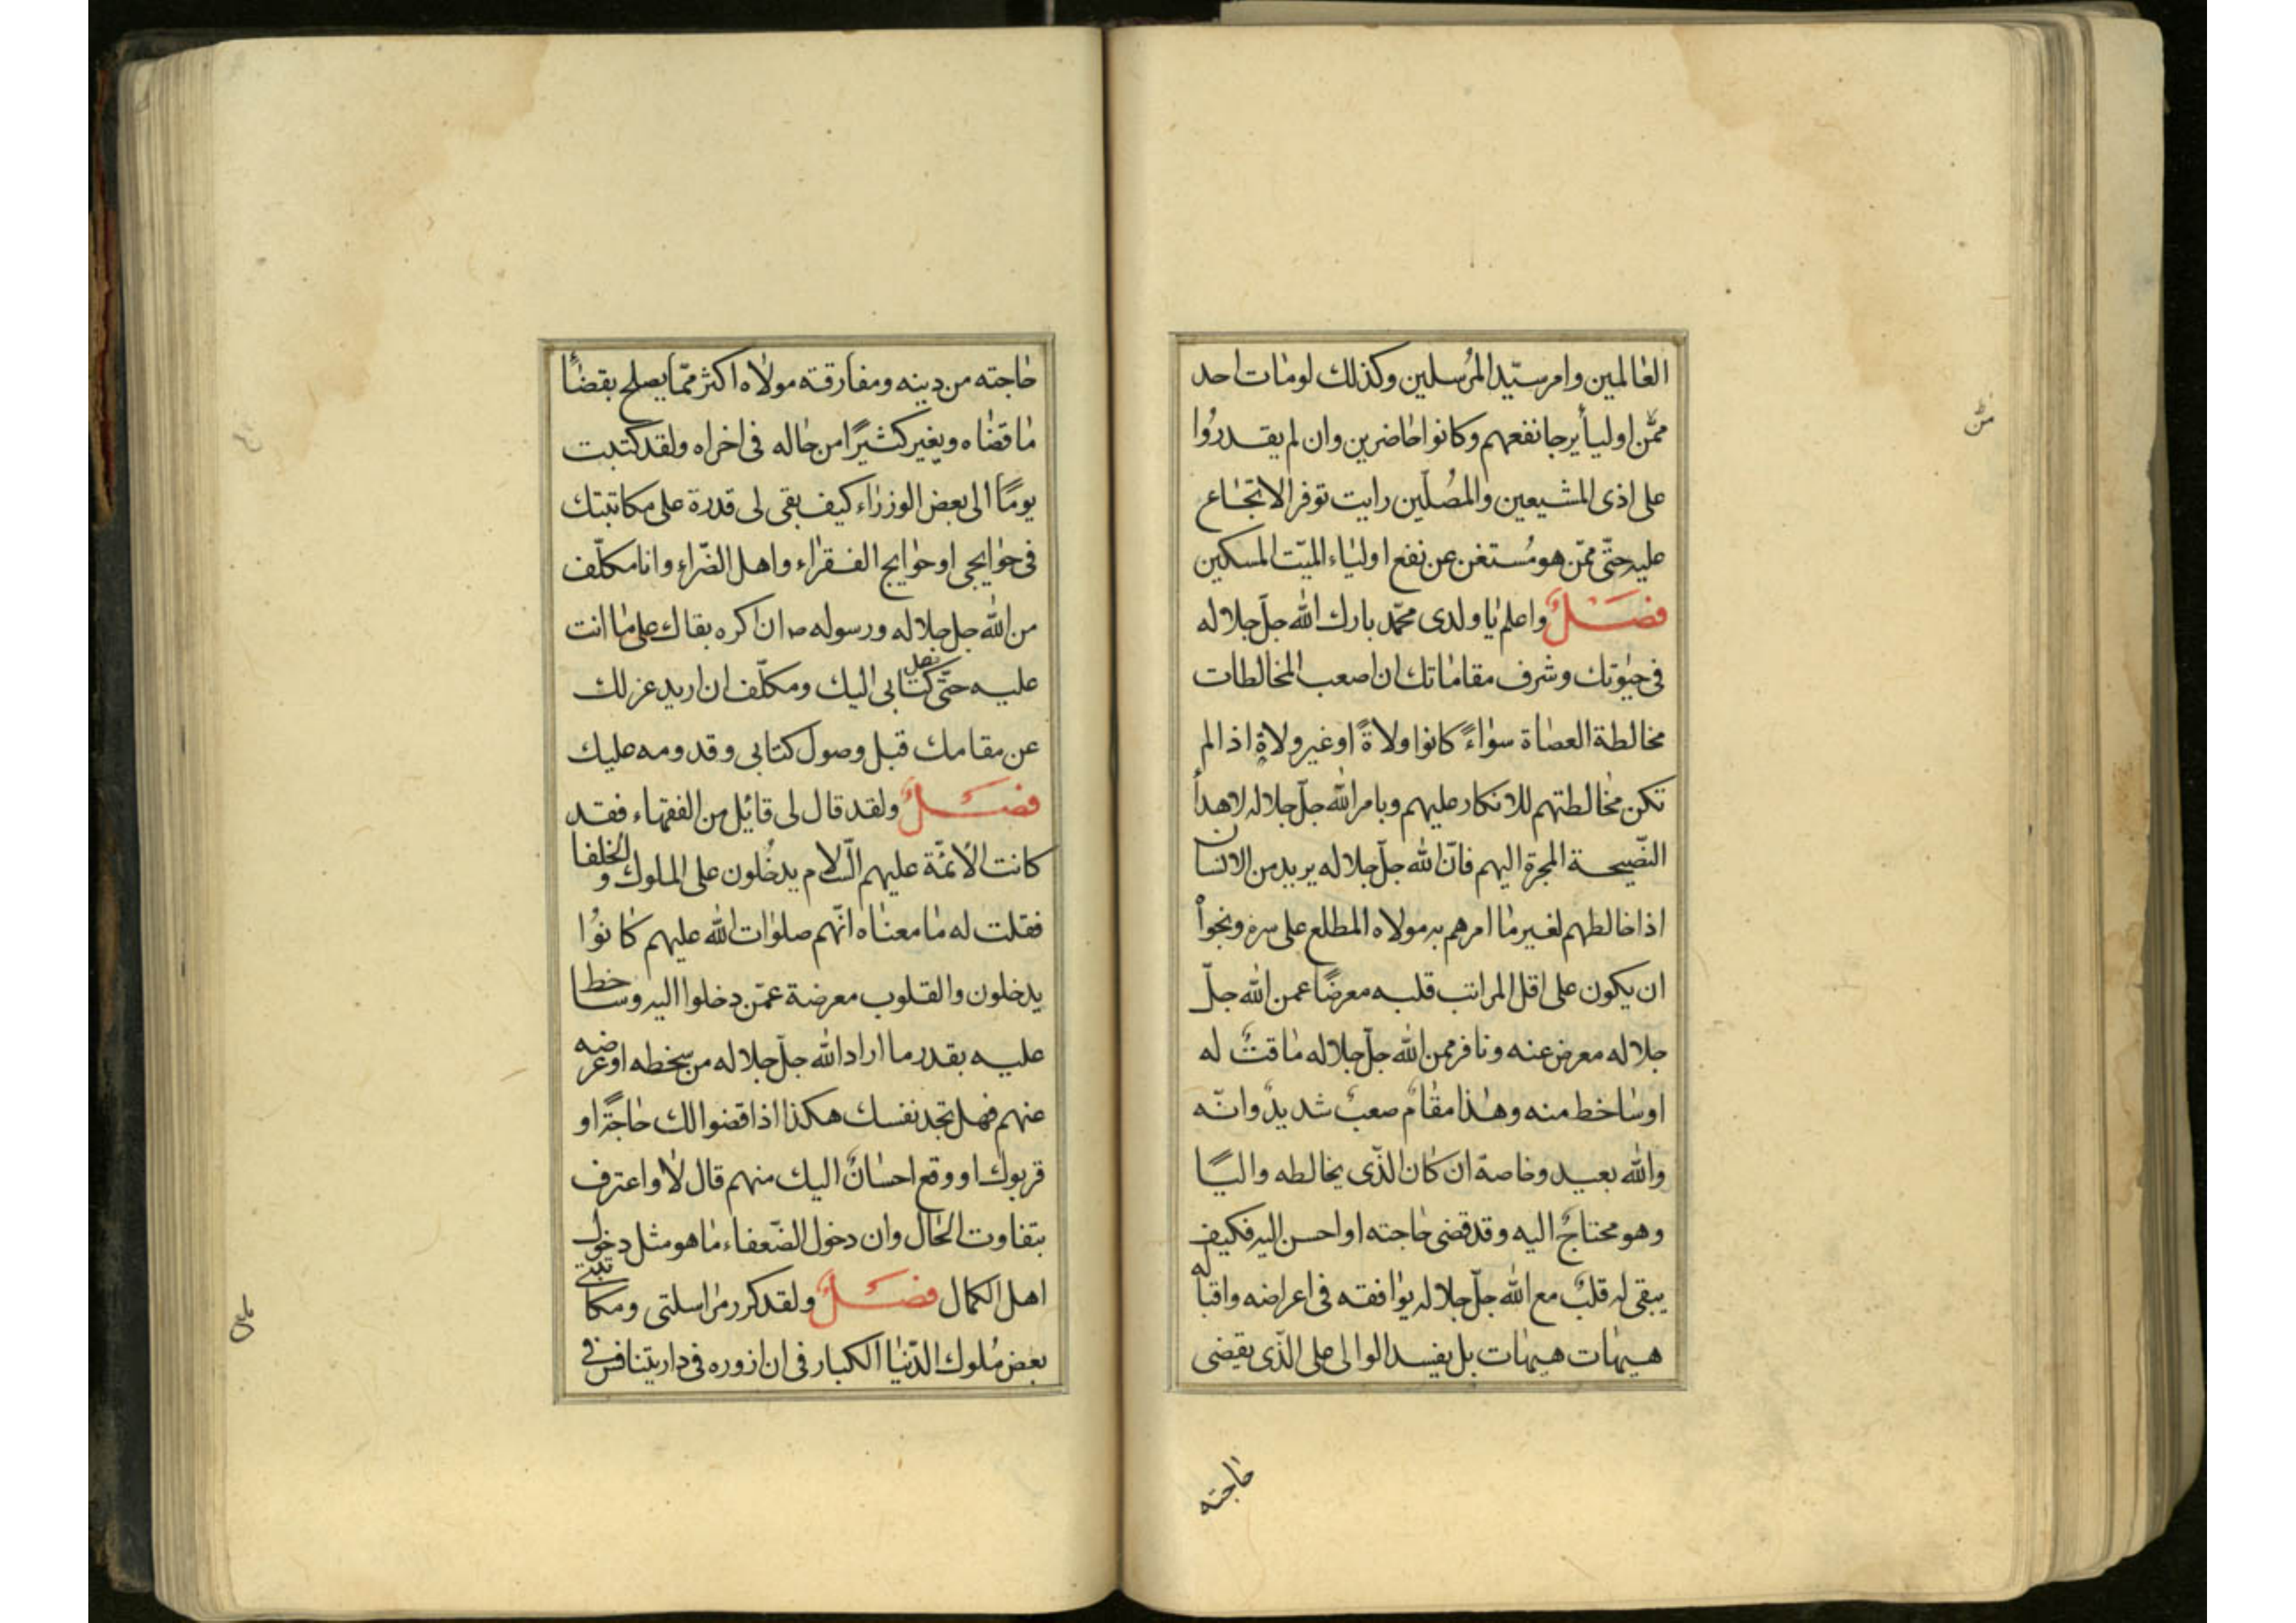 العالمين وامر سيّد المرُسلين وكذلك لومات احد
ممّن اوليأ يرجا نفعهم وكانوا حاضرين وان لم يقدروُا
على اذى المشيعين والمصُلّين رايت توفر الاتجاع
عليه حتّى ممّن هو مُستغن عن نفع اولياء الميّت المسكين
فصَلٌ واعلم يا ولدى محمّد بارك الله جلّ جلاله
فى حيوتك وشرف مقاماتك ان اصعب المخالطات
مخالطة العصاة سواءً كانوا ولاةً او غير ولاةٍ اذا لم
تكن مخالطتهم للانكار عليهم وبامر الله جلّ جلاله لاهدأ
النّصيحة المجرة اليهم فانّ الله جلّ جلاله يريد من الانسان
اذا خالطهم لغير ما امرهم به مولاه المطلع على سره ونجوأ
ان يكون على اقل المراتب قلبه معرضًا عمن الله جلّ
جلاله معرض عنه ونافر ممن الله جلّ جلاله ماقتٌ له
او ساخط منه وهذا مقامٌ صعبٌ شديدٌ وانّه
والله بعيد وخاصة ان كان الذّى يخالطه واليًا
وهو محتاجٌ اليه وقد قضى حاجته او احسن اليه فكيف
يبقى له قلبٌ مع الله جلّ جلاله يوافقه فى اعراضه واقباله
هيهات هيهات بل يفسد الوالى على الذّى يقضى
حاجته
حاجته من دينه ومفارقة مولاه اكثر ممّا يصلح بقضأ
ما قضاه ويغير كثيرًا من حاله فى اخراه ولقد كتبت
يومًا الى بعض الوزراء كيف بقى لى قدرة على مكاتبتك
فى حوايجى او حوايج الفقراء واهل الضّراء وانا مكلّف
من الله جل جلاله ورسوله ص ان اكره بقاك على ما انت
عليه حتّى يصل كتابى اليك ومكلّف ان اريد عزلك
عن مقامك قبل وصول كتابى وقدومه عليك
فصَلٌ ولقد قال لى قائل من الفقهاء فقد
كانت الائمّة عليهم السّلام يدخُلون على الملوك والخلفا
فقلت له ما معناه انّهم صلوات الله عليهم كانوُا
يدخلون والقلوب معرضة عمّن دخلوا اليه وساخط
عليه بقدر ما اراد الله جلّ جلاله من سخطه او عرضه
عنهم فهل تجد نفسك هكذا اذا قضوا لك حاجةً او
قربوك او وقع احسانٌ اليك منهم قال لا واعترف
بتفاوت الحال وان دخول الضّعفاء ما هو مثل دخول
اهل الكمال فصَلٌ ولقد كرر مراسلتى ومكاتبتى
بعض مُلوك الدّنيا الكبار فى ان ازوره فى دار يتنافس فى